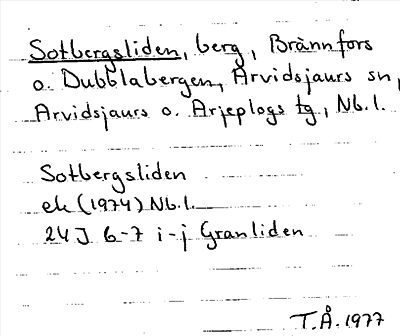 Sotbergsliden, berg, Brännfors
o. Dubblabergen, Arvidsjaurs sn,
Arvidsjaurs o. Arjeplogs tg, Nb.l.
Sotbergsliden
ek (1974) Nb.l.
24J 6-7 i-j Granliden
T.Å. 1977